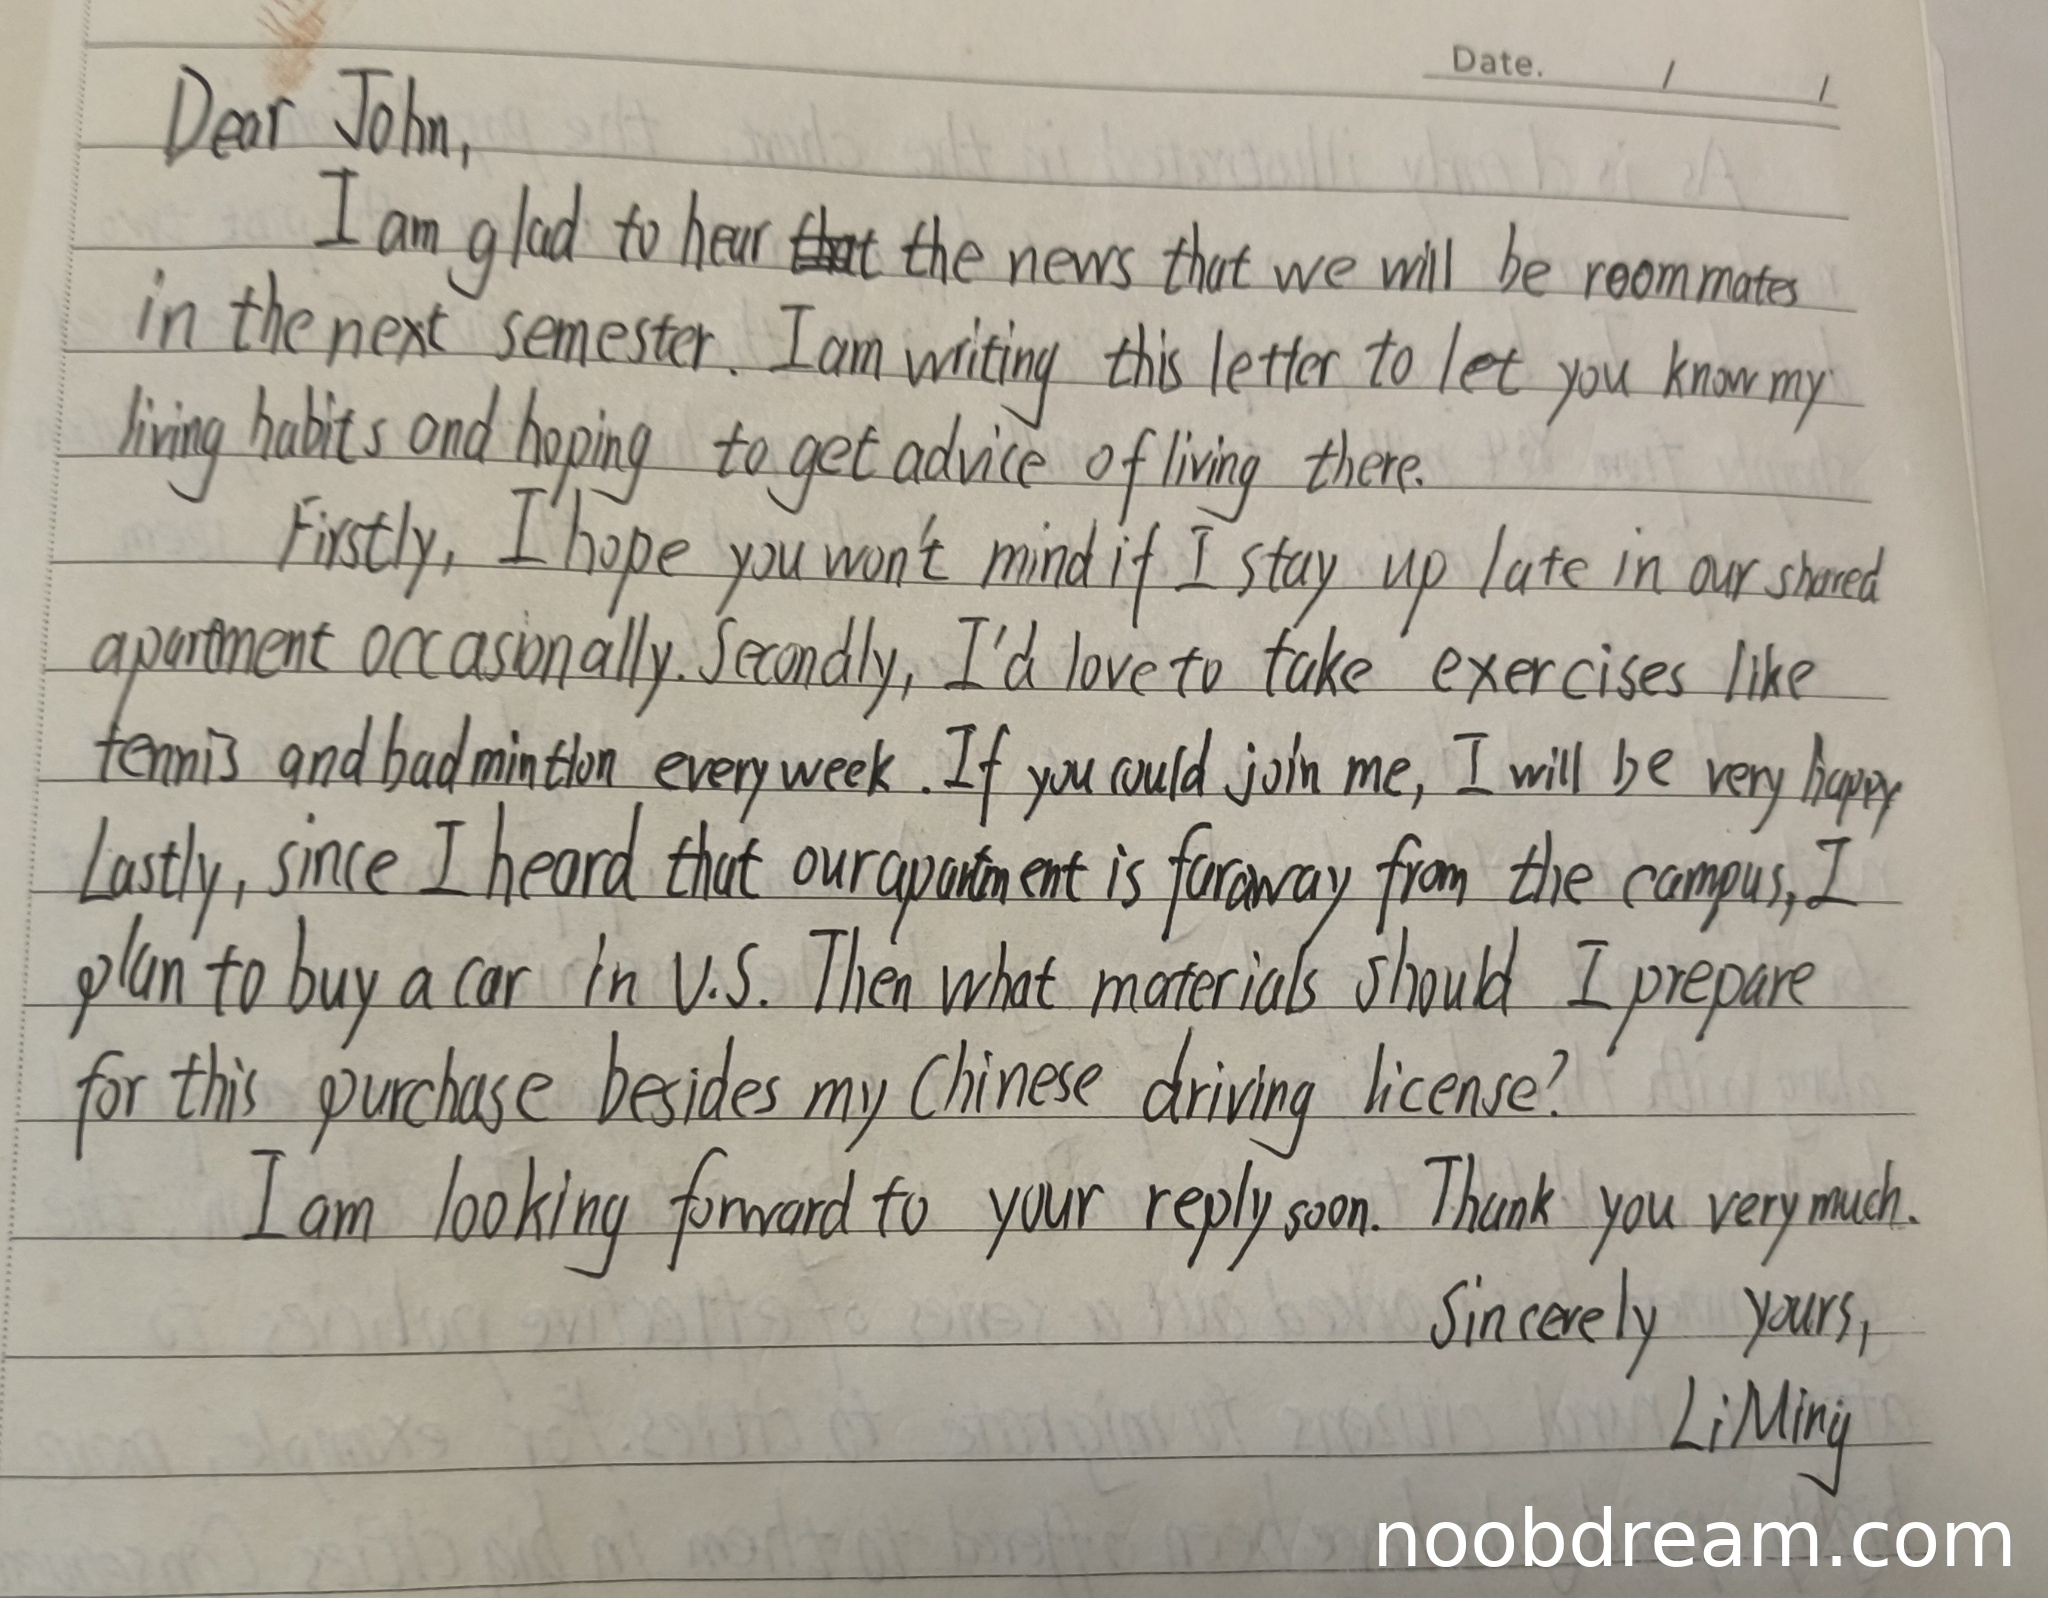 Date. / /
Dear John,
I am glad to hear that the news that we will be roommates
in the next semester. I am writing this letter to let you know my
living habits and hoping to get advice of living there.
Firstly, I hope you won't mind if I stay up late in our shared
apartment occasionally. Secondly, I'd love to take exercises like
tennis and badmintion every week. If you could join me, I will be very happy
Lastly, since I heard that our apartment is faraway from the campus, I
plan to buy a car in U.S. Then what materials should I prepare
for this purchase besides my Chinese driving license?
I am looking forward to your reply soon. Thank you very much.
Sincerely yours,
Li Ming
noobdream.com